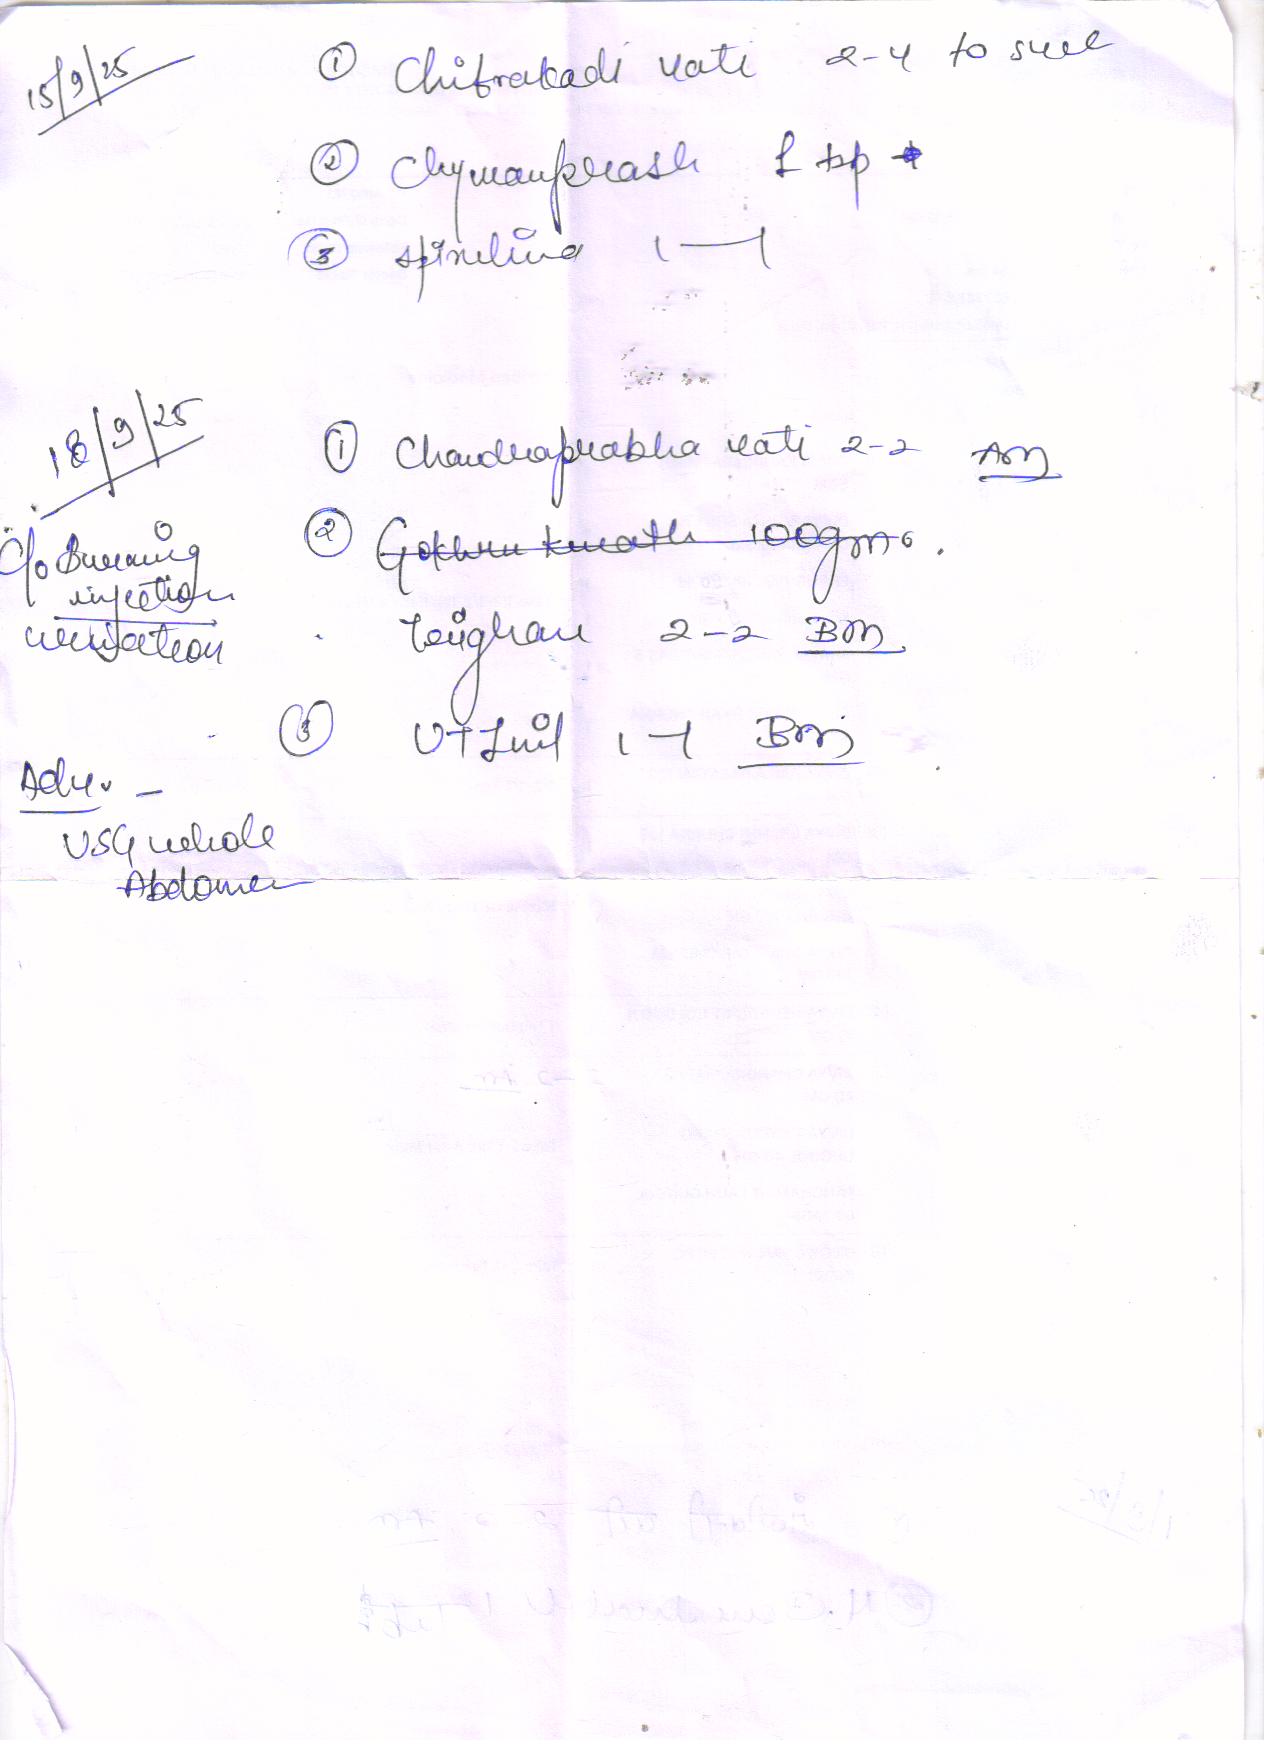 15/9/25
① Chitrakadi vati 2-4 to suck
② Chywanprash 1 tsp
③ Spirulina 1—1
18/9/25
① Chandraprabha vati 2-2 AM
C/o Burning
② Gokhru kwath 100gm
2-2 BM
③ 1—1 BM
Adv. —
USG whole
Abdomen